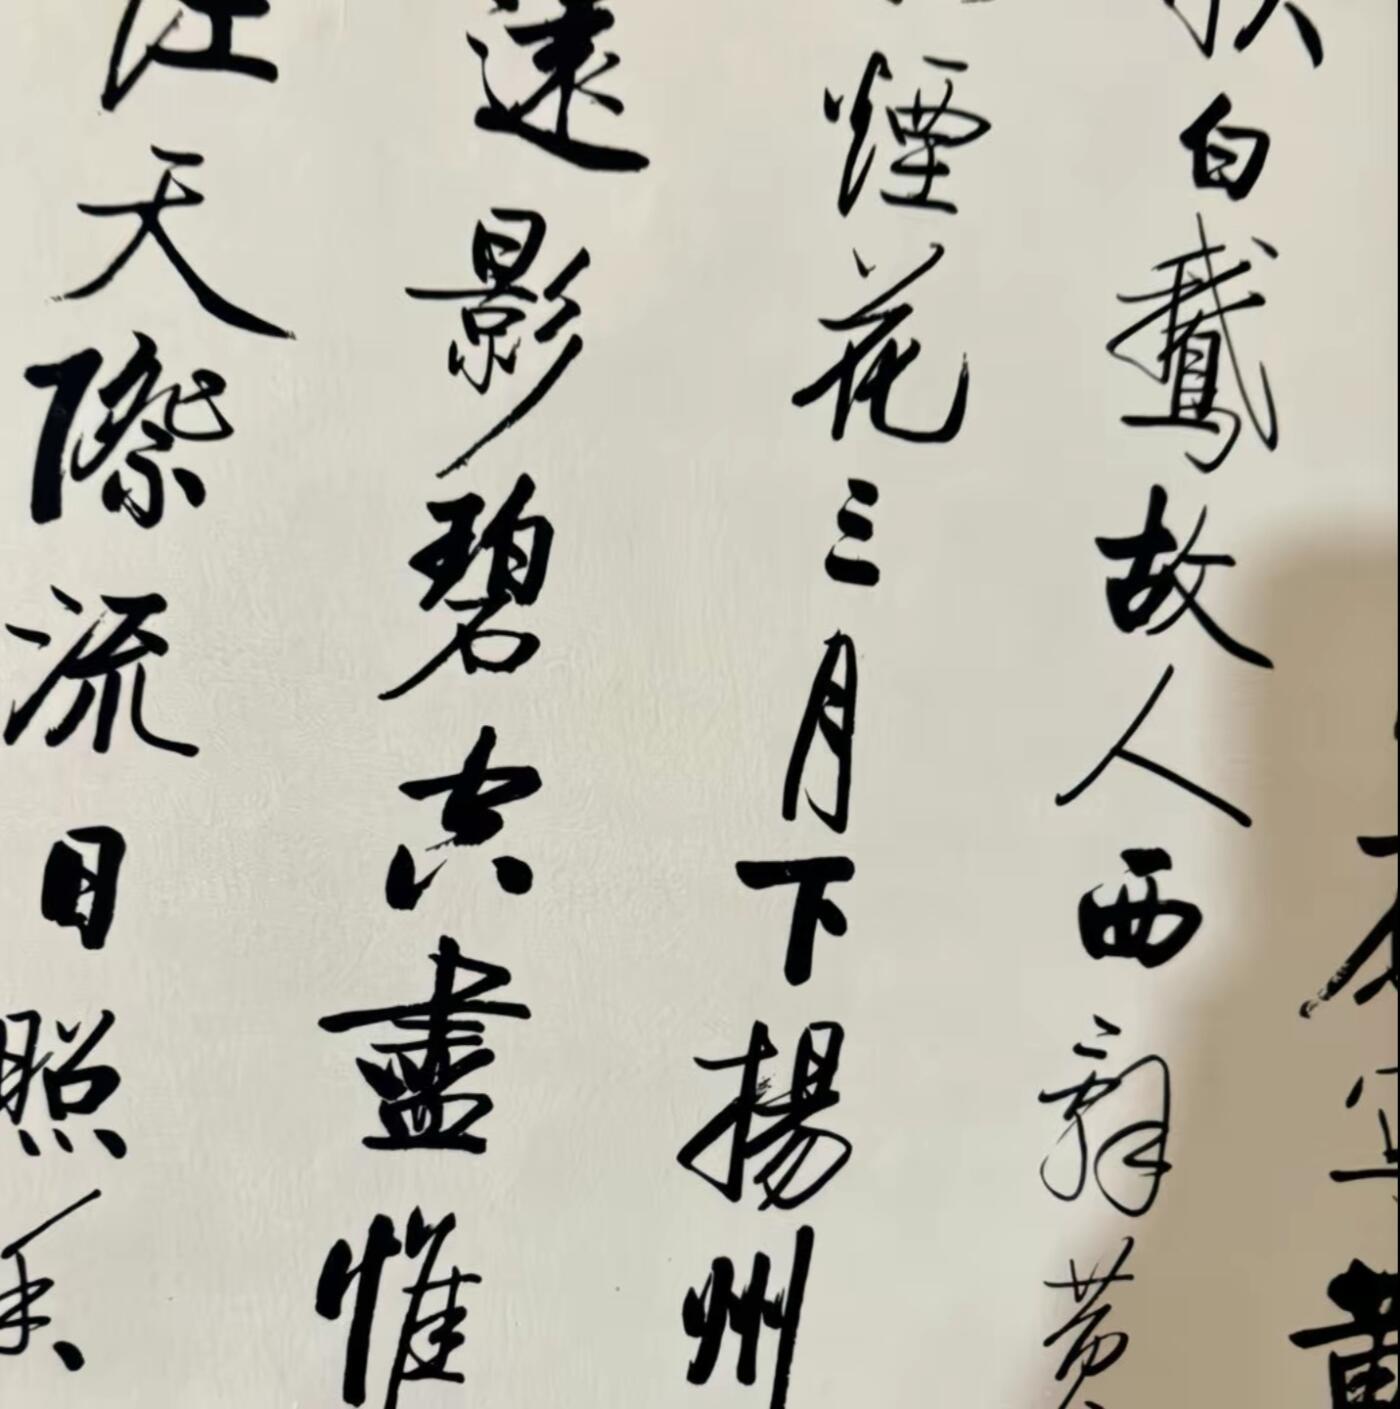 白鵞故人西辭黃
煙花三月下揚州
遠影碧空盡惟
江天際流日照香